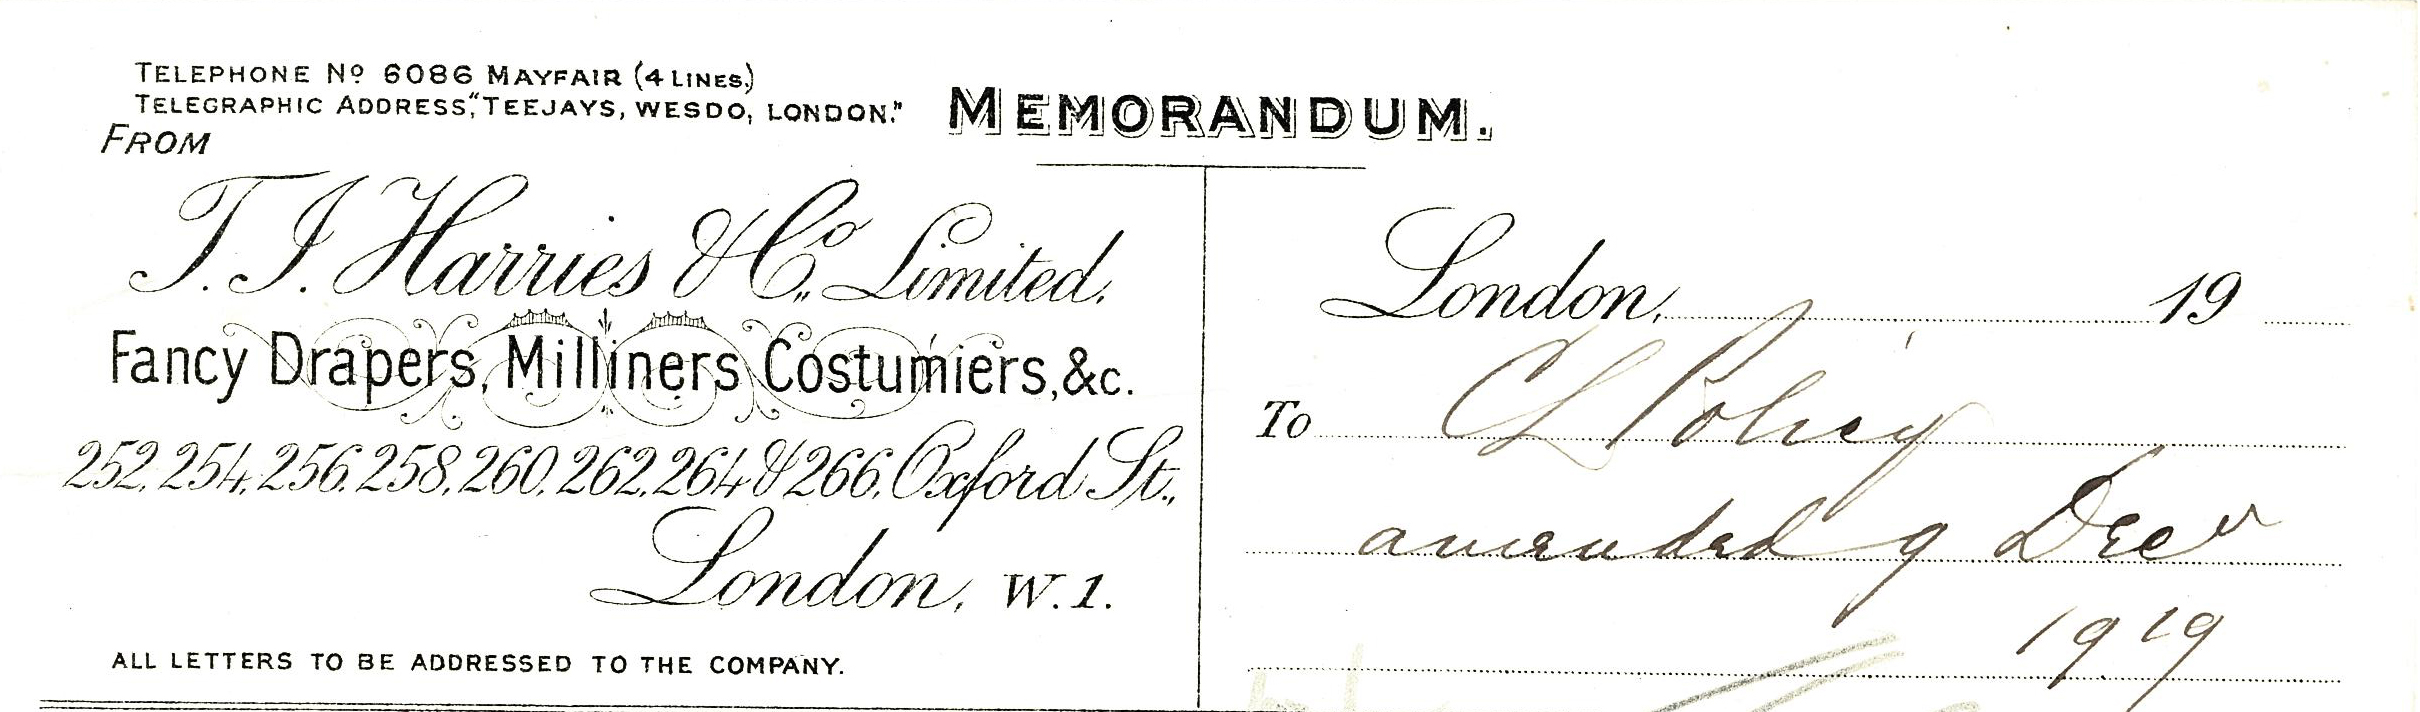 TELEPHONE Nº 6086 MAYFAIR (4 LINES.)
TELEGRAPHIC ADDRESS, "TEEJAYS, WESDO, LONDON."
MEMORANDUM.
FROM
T. J. Harries & Co., Limited.
Fancy Drapers, Milliners Costumiers, &c.
252, 254, 256, 258, 260, 262, 264 & 266, Oxford St.,
London, W.1.
ALL LETTERS TO BE ADDRESSED TO THE COMPANY.
London, 19
To CL Policy
amended 9 Decr
1919